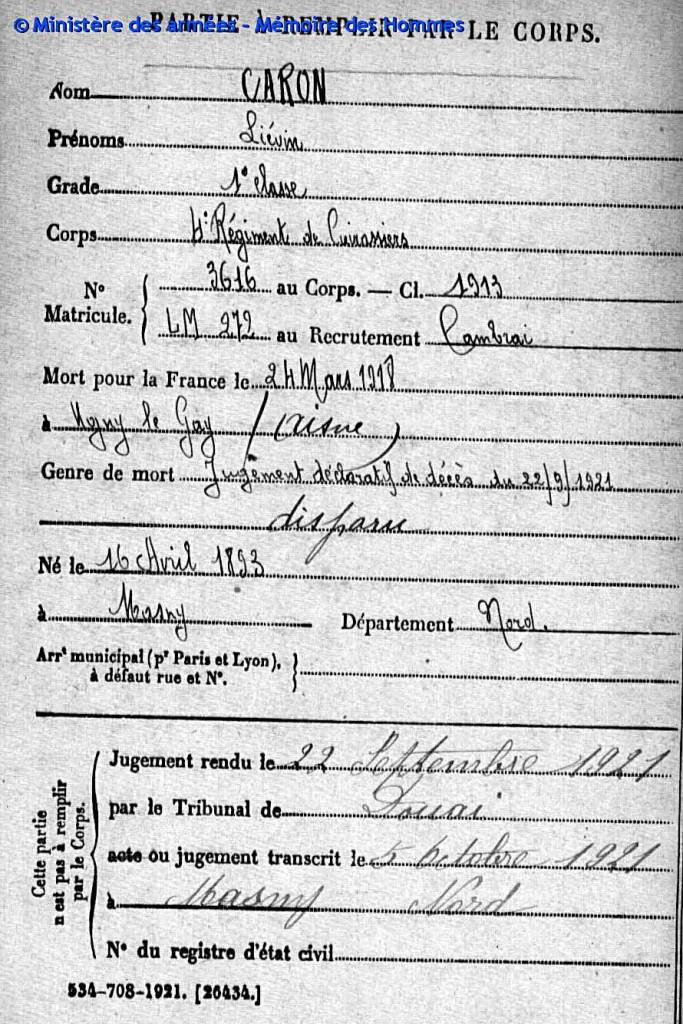 © Ministère des armées - Mémoire des Hommes
PARTIE À REMPLIR PAR LE CORPS.
Nom CARON
Prénoms Liévin
Grade 1e classe
Corps 4e Régiment de Cuirassiers
No Matricule. 3616 au Corps. — Cl. 1913
LM 272 au Recrutement Cambrai
Mort pour la France le 24 Mars 1918
à Ugny le Gay (Aisne)
Genre de mort Jugement déclaratif de décès du 22/9/1921
disparu
Né le 16 Avril 1893
à Masny Département Nord.
Arrt municipal (pr Paris et Lyon),
à défaut rue et No.
Cette partie n'est pas à remplir par le Corps.
Jugement rendu le 22 Septembre 1921
par le Tribunal de Douai
acte ou jugement transcrit le 5 Octobre 1921
à Masny Nord
No du registre d'état civil
534-708-1921. [26434.]